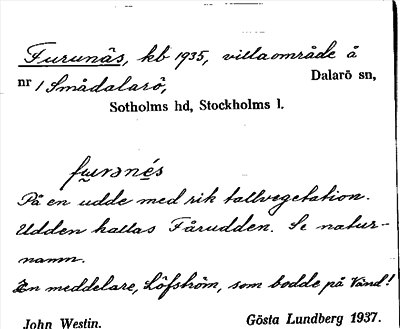 Furunäs, kb 1935, villaområde å
nr 1 Smådalarö, Dalarö sn,
Sotholms hd, Stockholms l.
furənés
På en udde med rik tallvegetation.
Udden kallas Fårudden. Se natur-
namn.
En meddelare, Löfström, som bodde på Vänd!
John Westin. Gösta Lundberg 1937.